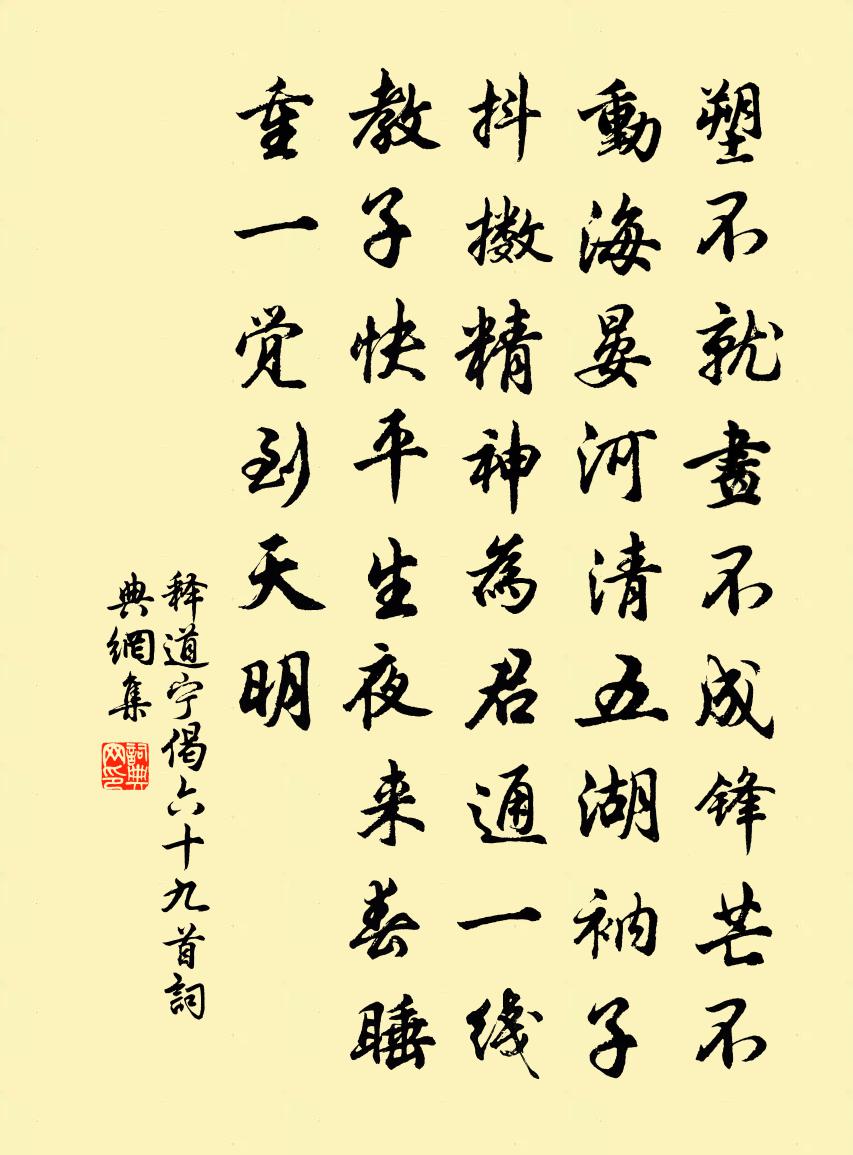 塑不就畫不成鋒芒不
動海晏河清五湖衲子
抖擻精神為君通一线
教子快平生夜来春睡
重一觉到天明
释道宁偈六十九首詞
典網集
詞典
网印